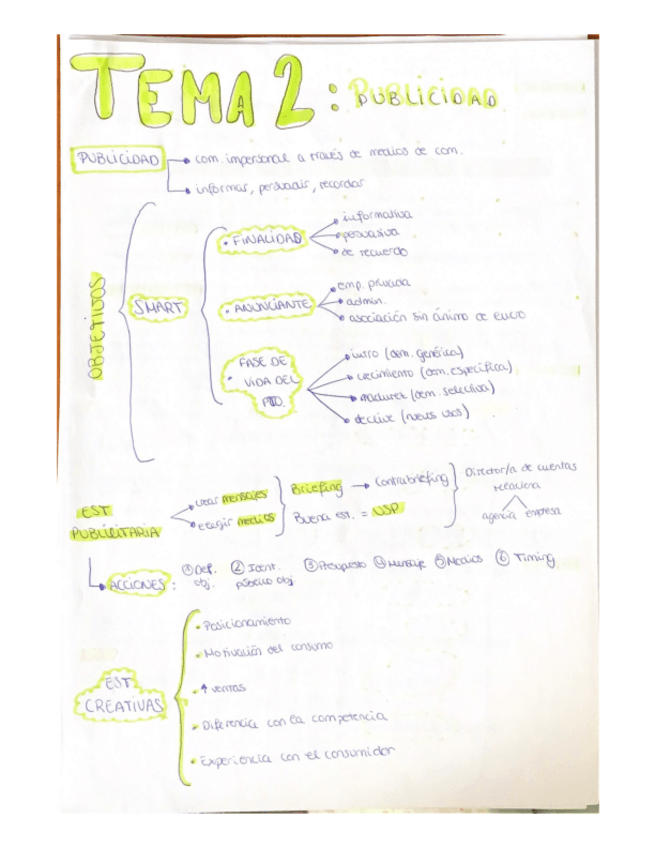 TEMA 2: PUBLICIDAD
PUBLICIDAD
com. impersonal a través de medios de com.
informar, persuadir, recordar
OBJETIVOS
SMART
• FINALIDAD
informativa
persuasiva
de recuerdo
• ANUNCIANTE
emp. privada
admin.
asociación sin ánimo de lucro
• FASE DE VIDA DEL PTO.
intro (dem. genérica)
crecimiento (dem. específica)
madurez (dem. selectiva)
declive (nuevos usos)
EST PUBLICITARIA
crear mensajes
elegir medios
Briefing → Contrabriefing
Buena est. = USP
Director/a de cuentas
relaciona
agencia empresa
ACCIONES:
① Def. obj. ② Ident. público obj. ③ Presupuesto ④ Mensaje ⑤ Medios ⑥ Timing
EST CREATIVAS
• Posicionamiento
• Motivación del consumo
• ↑ ventas
• Diferencia con la competencia
• Experiencia con el consumidor